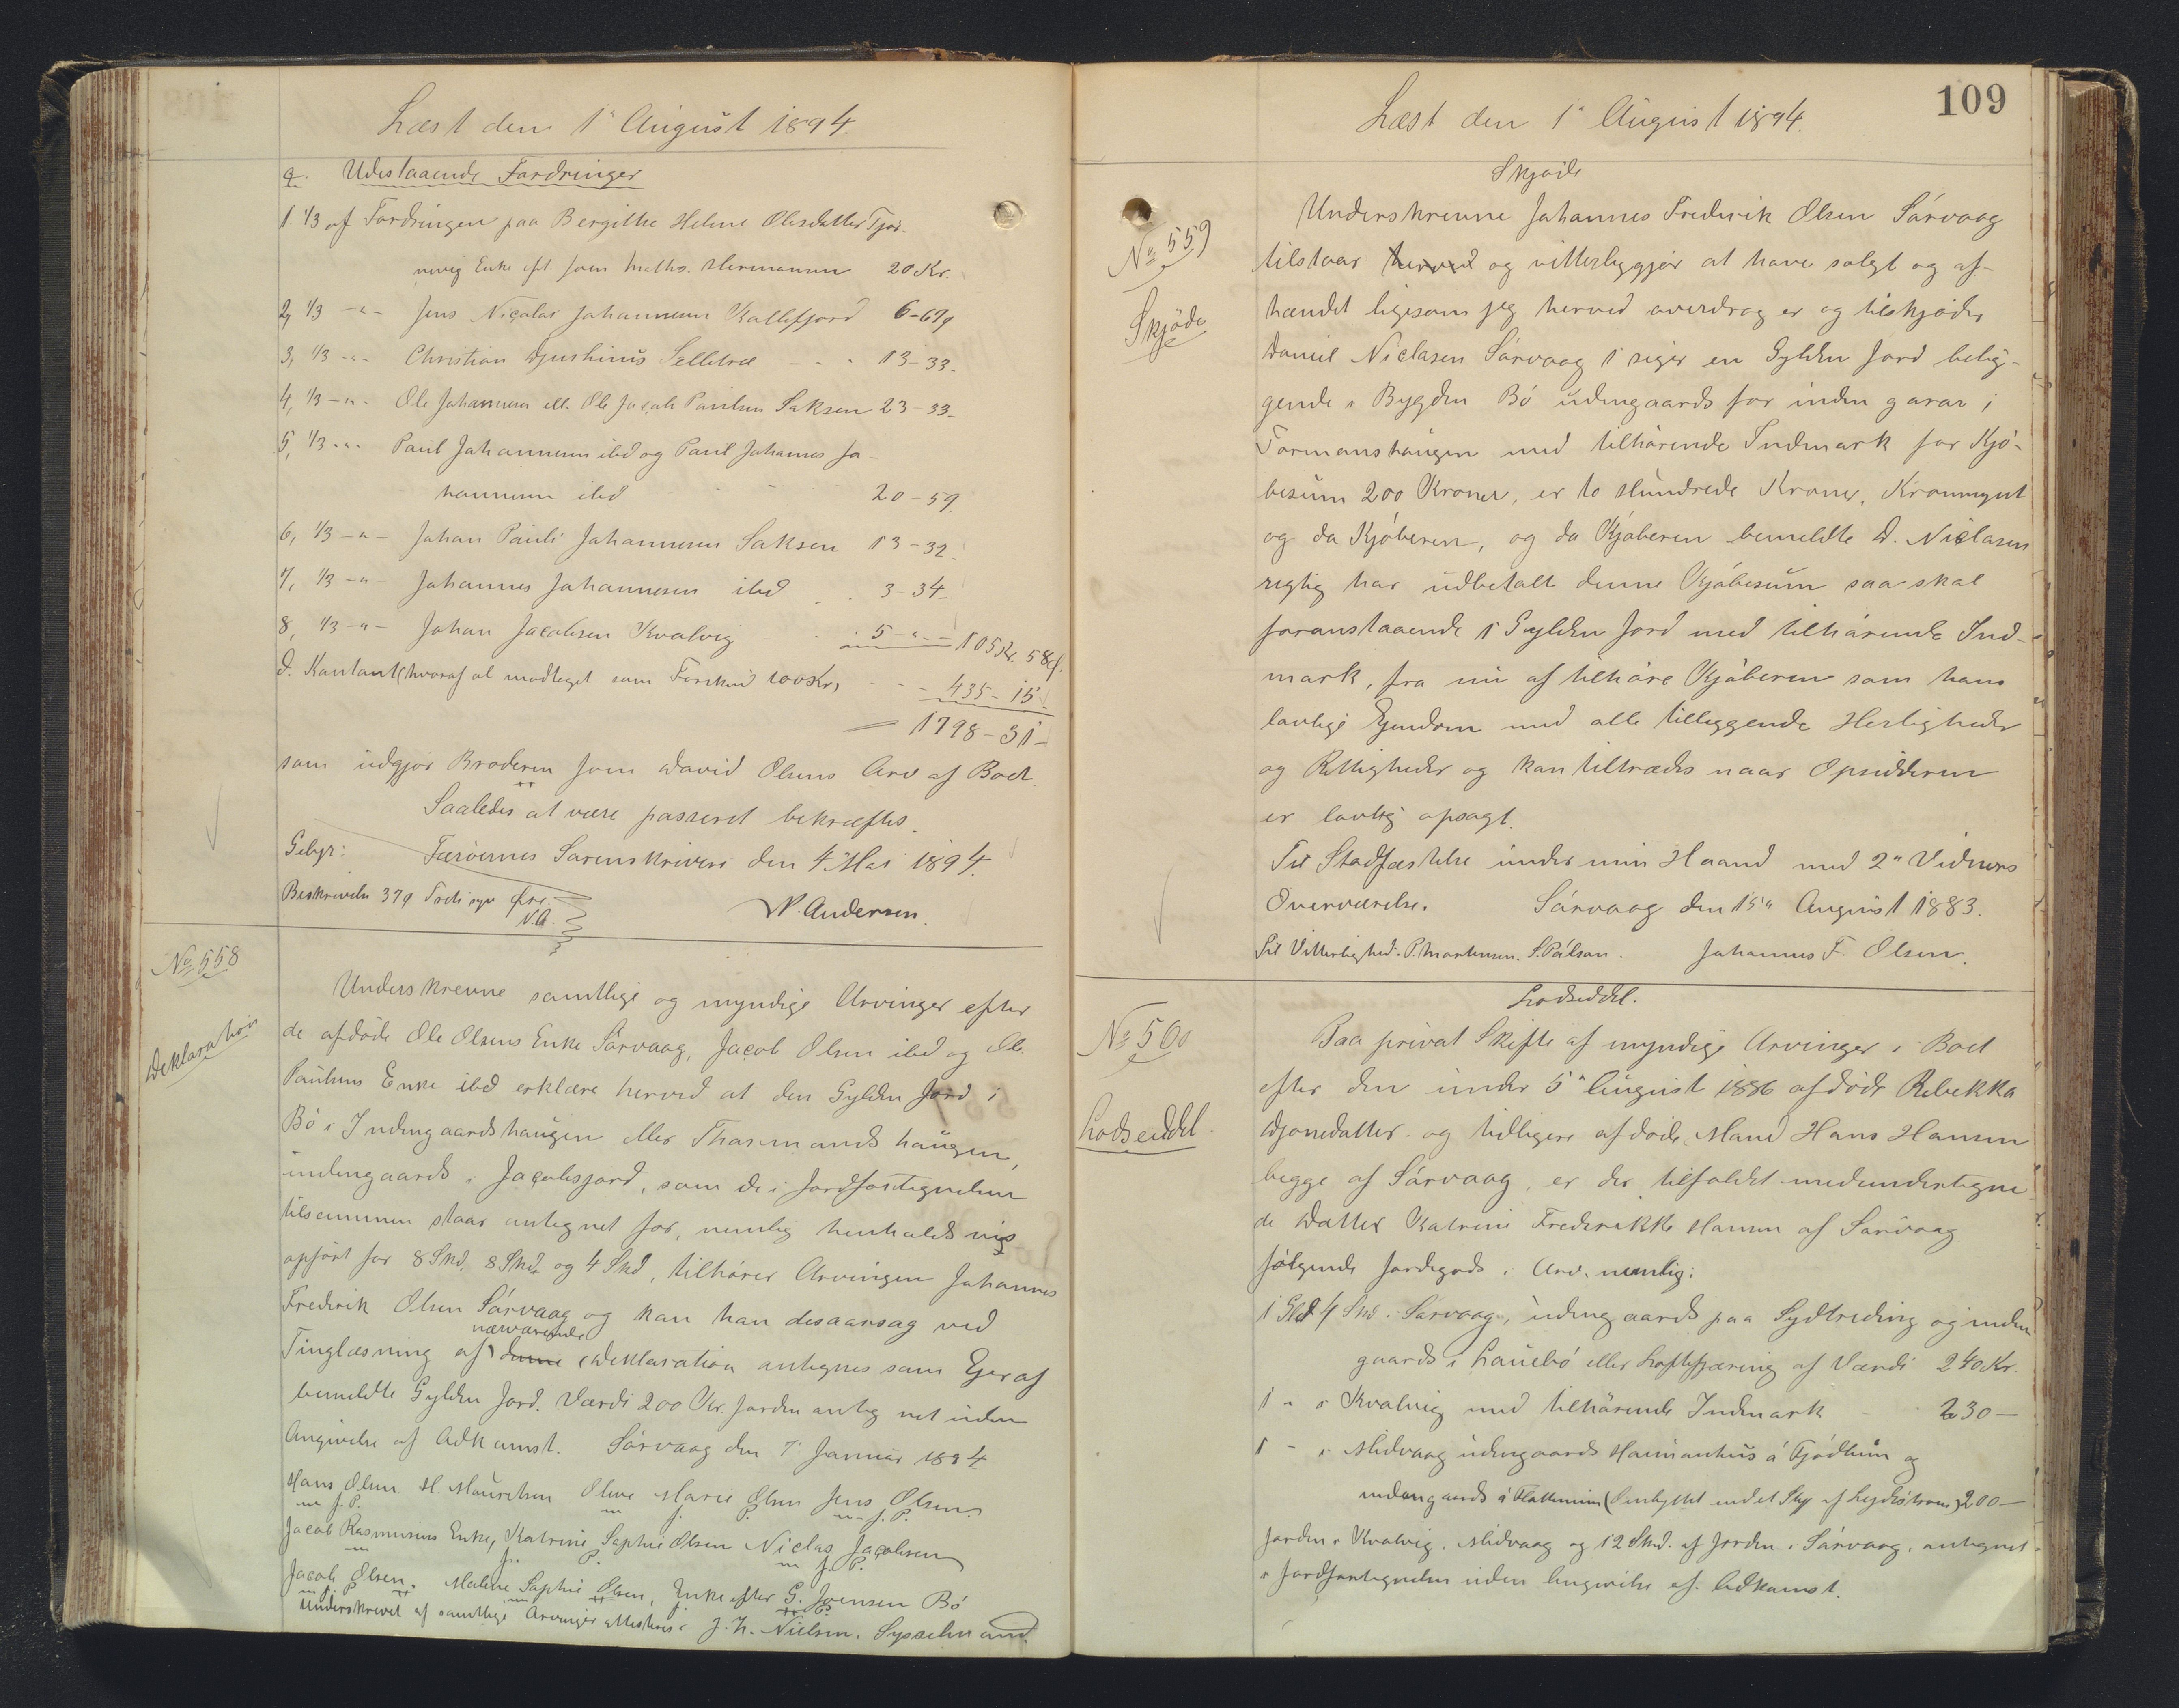 Læst den 1ª August 1894.
c. Udestaaende Fordringer
1. 1/3 af Fordringen paa Bergithe Helene Olesdatter Tjør-
nevig Enke eft. Joen Maths. Hermannsen 20 Kr.
2, 1/3 -"- Jens Nicolai Johannesen Kollefjord 6-67ø
3, 1/3 -"- Christian Djurhuus Selletræ - - - 13-33-
4, 1/3 -"- Ole Johannesen ell. Ole Jacob Poulsen Saksen 23-33-
5, 1/3 -"- Paul Johannesen ibd og Paul Johannes Jo-
hannesen ibd - - 20-59.
6, 1/3 -"- Johan Pauli Johannesen Saksen 13-32.
7, 1/3 -"- Johannes Johannesen ibd . . 3-34-
8, 1/3 -"- Johan Jacobsen Kvalvig . 5-"- 105 Kr. 58ø.
d. Kontant (hvoraf al modtaget som Forskud 100 Kr) - - - 435-15
= 1798-31-
som udgjør Broderen Joen David Olsens Arv af Boet.
Saaledes at være passeret bekræftes.
Gebyr: Færøernes Sorenskriveri den 4. Mai 1894.
Beskrivelse 37ø Treti syv Øre.
N.A. N. Andersen.
No 558
Deklaration
Underskrevne samtlige og myndige Arvinger efter
de afdøde Ole Olsens Enke Sørvaag, Jacob Olsen ibd og Ole
Paulsens Enke ibd erklære herved at den Gylden Jord i
Bø i Indengaardshaugen eller Thormands haugen,
indengaards i Jacobsjord, som de i Jordfortegnelsen
tilsammen staar antegnet for, nemlig henholdsvis
opført for 8 Skd, 8 Skd og 4 Skd, tilhører Arvingen Johannes
Frederik Olsen Sørvaag og kan han desaarsag ved
Tinglæsning af denne nærværende Deklaration antegnes som Ejer af
bemeldte Gylden Jord. Værdi 200 Kr. Jorden antegnet uden
Angivelse af Adkomst. Sørvaag den 7' Januar 1894
Hans Olsen H. Mouritsen Oline Marie Olsen Jens Olsen
m J. P. m J. P. m. J. P.
Jacob Rasmusens Enke, Katrine Sophie Olsen Niclas Jacobsen
m J. P. m J. P.
Jacob Olsen. Malene Sophie Olsen, Enke efter G. Joensen Bø
m J. P
Underskrevet af samtlige Arvinger attesteres. J. H. Nielsen. Sysselmand.
109
Læst den 1ª August 1894.
Skjøde
No 559
Skjøde
Underskrevne Johannes Frederik Olsen Sørvaag
tilstaar herved og vitterliggjør at have solgt og af-
hændet ligesom jeg herved overdrager og tilskjøder
Daniel Niclasen Sørvaag 1 siger en Gylden Jord belig-
gende i Bygden Bø udengaards for inden garar i
Tormanshaugen med tilhørende Indmark for Kjø-
besum 200 Kroner, er to Hundrede Kroner, Kronmynt
og da Kjøberen, og da Kjøberen bemeldte D. Niclasen
rigtig har udbetalt denne Kjøbesum saa skal
foranstaaende 1 Gylden Jord med tilhørende Ind-
mark, fra nu af tilhøre Kjøberen som hans
lovlige Ejendom med alle tilleggende Herligheder
og Rettigheder og kan tiltrædes naar Opsidderen
er lovlig opsagt.
Til Stadfæstelse under min Haand med 2" Vidners
Overværelse. Sørvaag den 15" August 1883.
Til Vitterlighed. P. Mortensen. S. Pólson. Johannes F. Olsen.
Lodseddel.
No 560
Lodseddel.
Paa privat Skifte af myndige Arvinger i Boet
efter den under 5" August 1886 afdøde Rebekka
Djonedatter og tidligere afdøde Mand Hans Hansen
begge af Sørvaag, er der tilfaldet medundertegne
de Datter Katrine Frederikke Hansen af Sørvaag
følgende Jordegods i Arv. nemlig:
1 Gld 4 Skd. i Sørvaag, udengaards paa Sydtreding og inden
gaards i Lauebø eller Loftsfjæring af Værdi 240 Kr.
1 " i Kvalvig med tilhørende Indmark - 230 —
1 - i Midvaag udengaards Haimanhus á Fjødlun og
indengaards á Flottunum (Ombyttet med et Sky af Lydistrom) 200 —
Jorden i Kvalvig, Midvaag og 12 Skd. af Jorden i Sørvaag, antegnet
i Jordfortegnelsen uden Angivelse af Adkomst.